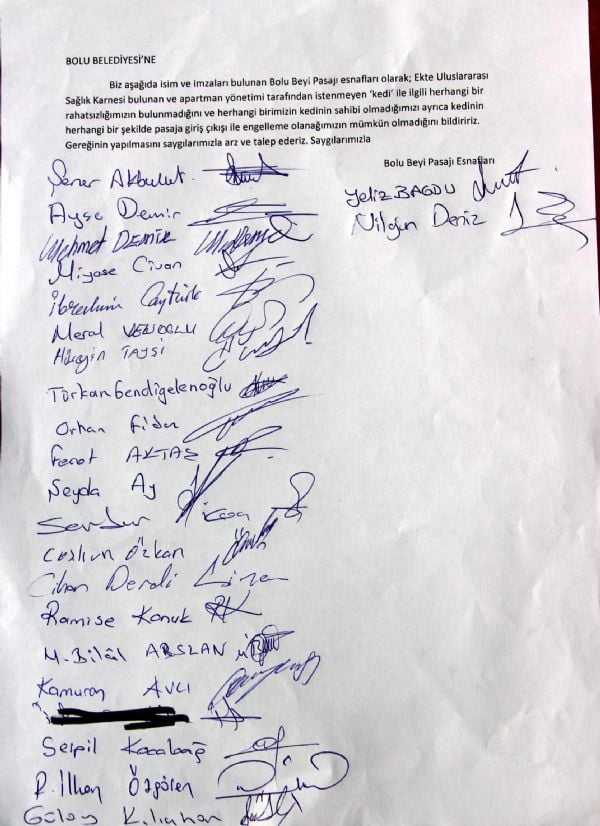 BOLU BELEDİYESİ'NE
Biz aşağıda isim ve imzaları bulunan Bolu Beyi Pasajı esnafları olarak; Ekte Uluslararası
Sağlık Karnesi bulunan ve apartman yönetimi tarafından istenmeyen 'kedi' ile ilgili herhangi bir
rahatsızlığımızın bulunmadığını ve herhangi birimizin kedinin sahibi olmadığımızı ayrıca kedinin
herhangi bir şekilde pasaja giriş çıkışı ile engelleme olanağımızın mümkün olmadığını bildiririz.
Gereğinin yapılmasını saygılarımızla arz ve talep ederiz. Saygılarımızla
Bolu Beyi Pasajı Esnafları
Şener Akbulut
Ayşe Demir
Mehmet DEMİR
Miyase Civan
İbrahim Caytürk
Meral
Hüseyin TAYŞİ
Türkan Gendigelenoğlu
Orhan Fidan
Ferat AKTAŞ
Şeyda Ay
Serdar
Coşkun Özkan
Cihan Derdi
Ramise Konuk
M. Bilâl ARSLAN
Kamuran AVCI
Serpil Kocabaş
R. İlhan Özgören
Gülay
Yeliz BAGDU
Nilgün Deniz